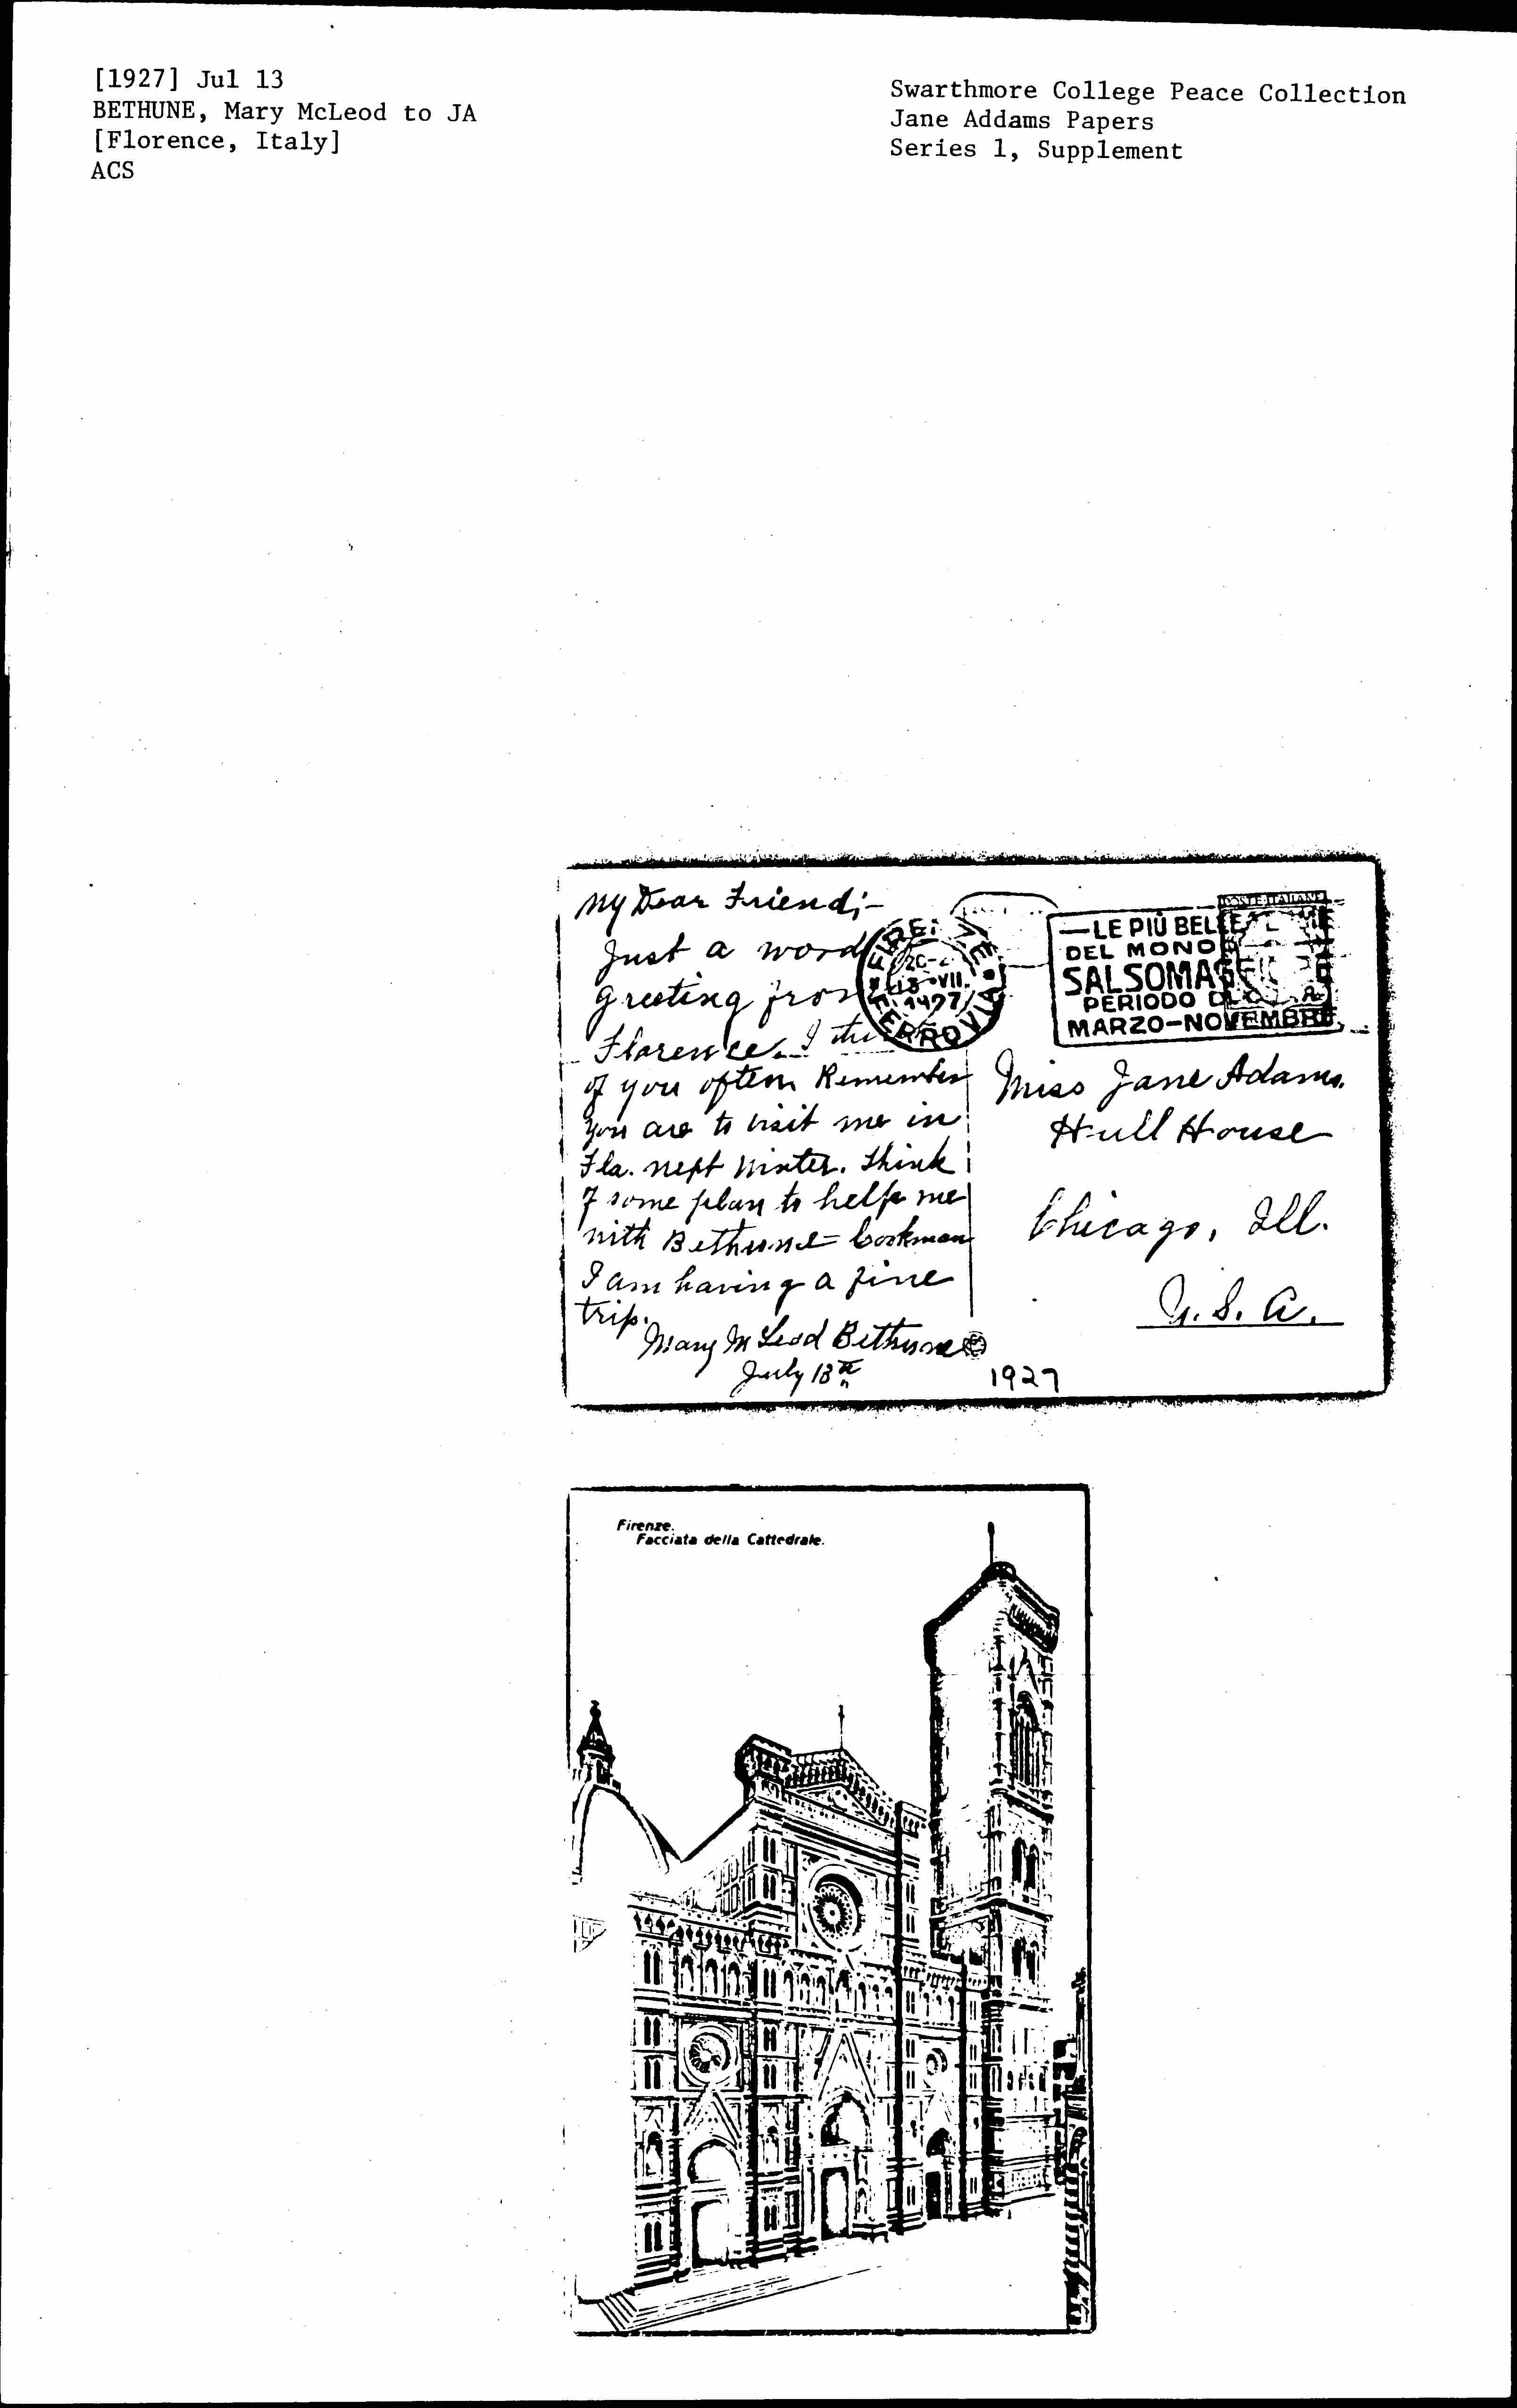 [1927] Jul 13
BETHUNE, Mary McLeod to JA
[Florence, Italy]
ACS
Swarthmore College Peace Collection
Jane Addams Papers
Series 1, Supplement
My Dear Friend;-
Just a word
Greeting from
Florence. I
of you often Remember
you are to visit me in
Fla. next winter. Think
of some plan to help me
with Bethune-Cookman
I am having a fine
trip.
Mary McLeod Bethune
July 13th
1927
FERROVIA
13 VII.
1927
POSTE ITALIANE
—LE PIÙ BELLE
DEL MONDO
SALSOMAG
PERIODO
MARZO-NOVEMBRE
Miss Jane Adams.
Hull House
Chicago, Ill.
U.S.A.
Firenze.
Facciata della Cattedrale.